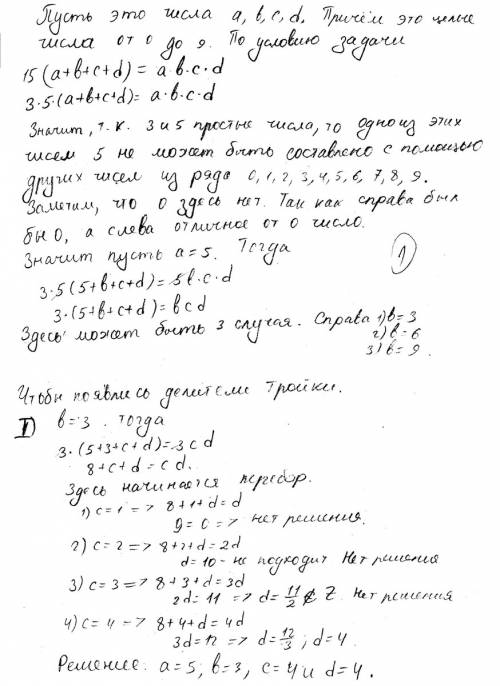 Пусть это числа a, b, c, d. Причём это целые
числа от 0 до 9. По условию задачи
15(a+b+c+d)= a·b·c·d
3·5·(a+b+c+d)= a·b·c·d
Значит, т.к. 3 и 5 простые числа, то одно из этих
чисел 5 не может быть составлено с помощью
других чисел из ряда 0, 1, 2, 3, 4, 5, 6, 7, 8, 9.
Заметим, что 0 здесь нет. Так как справа был
бы 0, а слева отличное от 0 число.
Значит пусть a=5. Тогда
1
3·5(5+b+c+d)=5b·c·d
3·(5+b+c+d)=bcd
Здесь может быть 3 случая. Справа 1) b=3
2) b=6
3) b=9.
Чтобы появлись делители тройки.
I) b=3. Тогда
3·(5+3+c+d)=3cd
8+c+d=cd.
Здесь начинается перебор.
1) c=1 => 8+1+d=d
9=0 => нет решения.
2) c=2 => 8+2+d=2d
d=10 - не подходит Нет решения
3) c=3 => 8+3+d=3d
2d=11 => d=11/2 ∉ Z. Нет решения
4) c=4 => 8+4+d=4d
3d=12 => d=12/3; d=4.
Решение: a=5, b=3, c=4 и d=4.